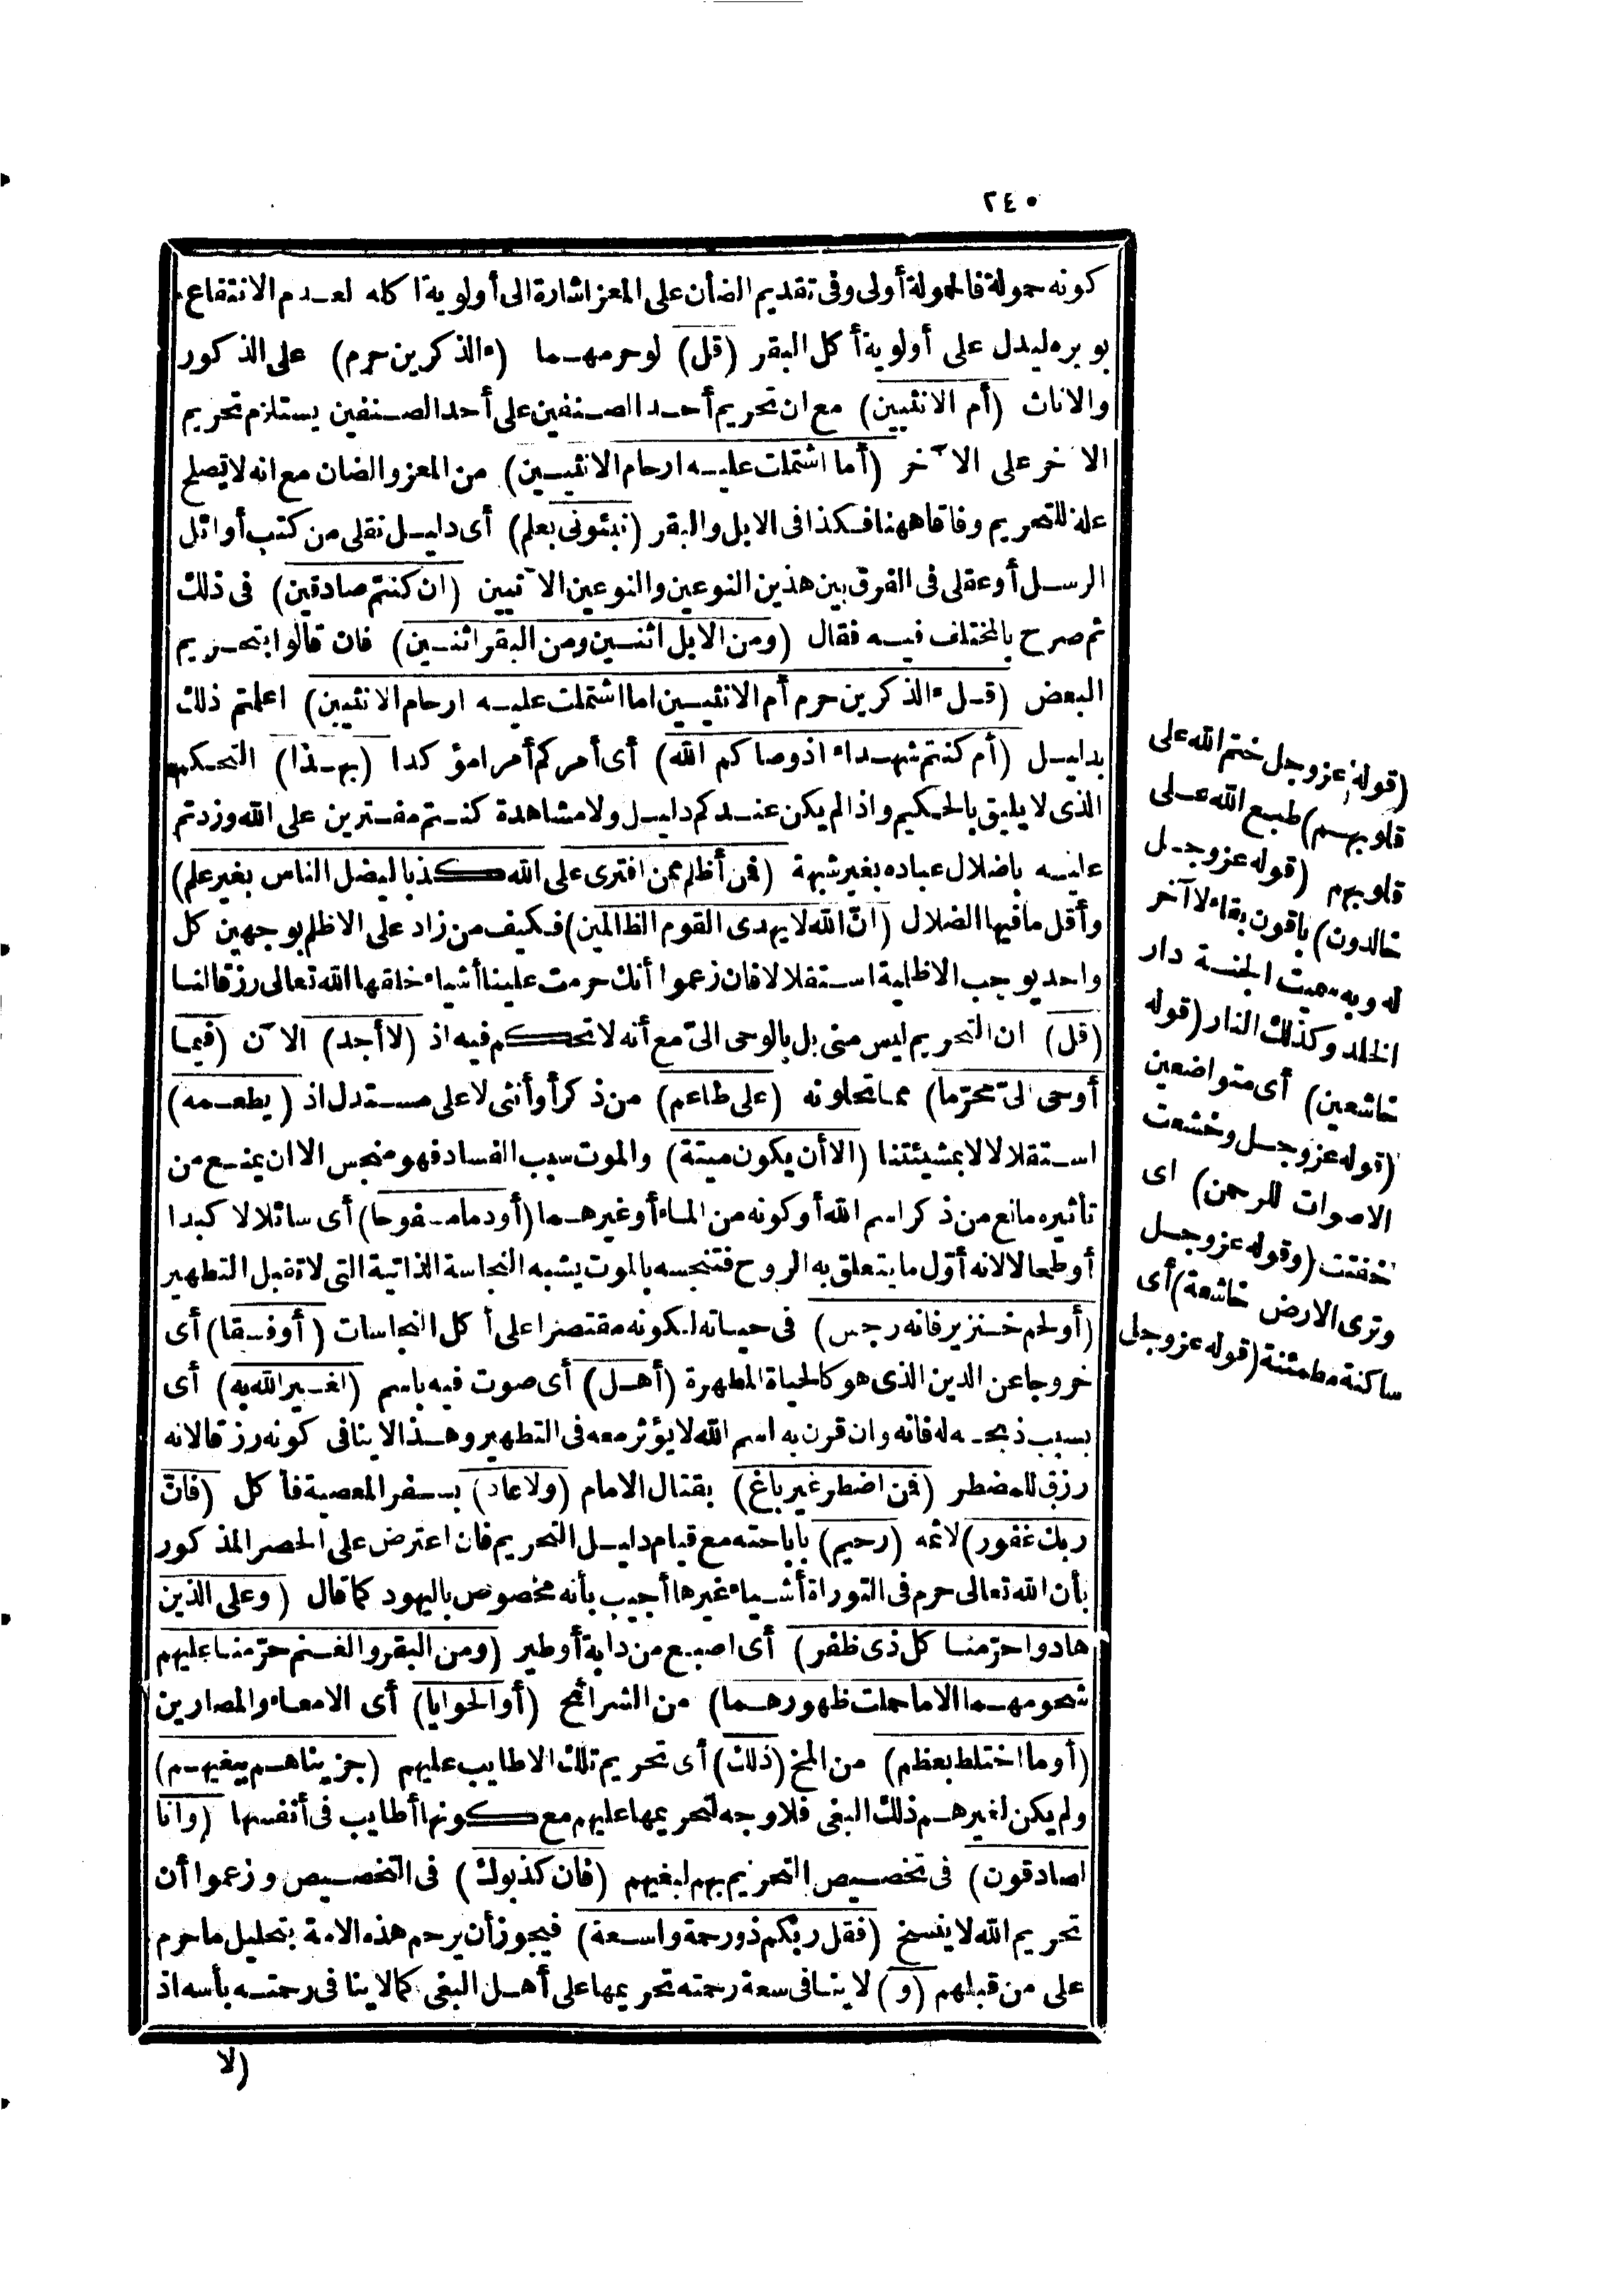 ٢٤٠
كونه حمولة فالحمولة أولى وفى تقديم الضأن على المعز اشارة الى أولوية اكله لعدم الانتفاع
بوبره ليدل على أولوية أكل البقر (قل) لو حرمهما (ءالذكرين حرم) على الذكور
والاناث (أم الانثيين) مع ان تحريم أحد الصنفين على أحد الصنفين يستلزم تحريم
الاخر على الآخر (أما اشتملت عليه ارحام الانثيين) من المعز والضان مع انه لا يصلح
علة للتحريم وفاقا ههنا فكذا فى الابل والبقر (نبئونى بعلم) أى دليل نقلى من كتب أوائل
الرسل أو عقلى فى الفرق بين هذين النوعين والنوعين الآتيين (ان كنتم صادقين) فى ذلك
ثم صرح بالمختلف فيه فقال (ومن الابل اثنين ومن البقر اثنين) فان قالوا بتحريم
البعض (قل ءالذكرين حرم أم الانثيين اما اشتملت عليه ارحام الانثيين) اعلمتم ذلك
بدليل (أم كنتم شهداء اذ وصاكم الله) أى أمركم أمرا مؤكدا (بهذا) التحكم
الذى لا يليق بالحكيم واذا لم يكن عندكم دليل ولا مشاهدة كنتم مفترين على الله وزدتم
عليه باضلال عباده بغير شبهة (فمن أظلم ممن افترى على الله كذبا ليضل الناس بغير علم)
وأقل ما فيها الضلال (انّ الله لا يهدى القوم الظالمين) فكيف من زاد على الاظلم بوجهين كل
واحد يوجب الاظلمية استقلالا فان زعموا أنك حرمت علينا أشياء خلقها الله تعالى رزقا لنا
(قل) ان التحريم ليس منى بل بالوحى الىّ مع أنه لا تحكم فيه اذ (لا أجد) الآن (فيما
أوحى الىّ محرّما) مما تحلونه (على طاعم) من ذكر أو أنثى لا على مستدل اذ (يطعمه)
استقلالا لا بمشيئتنا (الا أن يكون ميتة) والموت سبب الفساد فهو منجس الا ان يمنع من
تأثيره مانع من ذكر اسم الله أو كونه من الماء أو غيرهما (أو دما مسفوحا) أى سائلا لا كبدا
أو طحالا لانه أوّل ما يتعلق به الروح فتنجسه بالموت يشبه النجاسة الذاتية التى لا تقبل التطهير
(أو لحم خنزير فانه رجس) فى حياته لكونه مقتصرا على أكل النجاسات (أو فسقا) أى
خروجا عن الدين الذى هو كالحياة المطهرة (أهل) أى صوت فيه باسم (لغير الله به) أى
بسبب ذبحه له فانه وان قرن به اسم الله لا يؤثر معه فى التطهير وهذا لا ينافى كونه رزقا لانه
رزق للمضطر (فمن اضطر غير باغ) بقتال الامام (ولا عاد) بسفر المعصية فأكل (فانّ
ربك غفور) لاثمه (رحيم) باباحته مع قيام دليل التحريم فان اعترض على الحصر المذكور
بأن الله تعالى حرم فى التوراة أشياء غيرها أجيب بأنه مخصوص باليهود كما قال (وعلى الذين
هادوا حرّمنا كل ذى ظفر) أى اصبع من دابة أو طير (ومن البقر والغنم حرّمنا عليهم
شحومهما الا ما حملت ظهورهما) من الشرائح (أو الحوايا) أى الامعاء والمصارين
(أو ما اختلط بعظم) من المخ (ذلك) أى تحريم تلك الاطايب عليهم (جزيناهم ببغيهم)
ولم يكن لغيرهم ذلك البغى فلا وجه لتحريمها عليهم مع كونها أطايب فى أنفسها (وانا
لصادقون) فى تخصيص التحريم بهم لبغيهم (فان كذبوك) فى التخصيص وزعموا أن
تحريم الله لا ينسخ (فقل ربكم ذو رحمة واسعة) فيجوز أن يرحم هذه الامة بتحليل ما حرم
على من قبلهم (و) لا ينافى سعة رحمته تحريمها على أهل البغى كما لا ينافى رحمته بأسه اذ
(لا
(قوله عز وجل ختم الله على
قلوبهم) طبع الله على
قلوبهم (قوله عز وجل
خالدون) باقون بقاء لا آخر
له وبه سميت الجنة دار
الخلد وكذلك النار (قوله
خاشعين) أى متواضعين
(قوله عز وجل وخشعت
الاصوات للرحمن) اى
خفتت (وقوله عز وجل
وترى الارض خاشعة) أى
ساكنة مطمئنة (قوله عز وجل